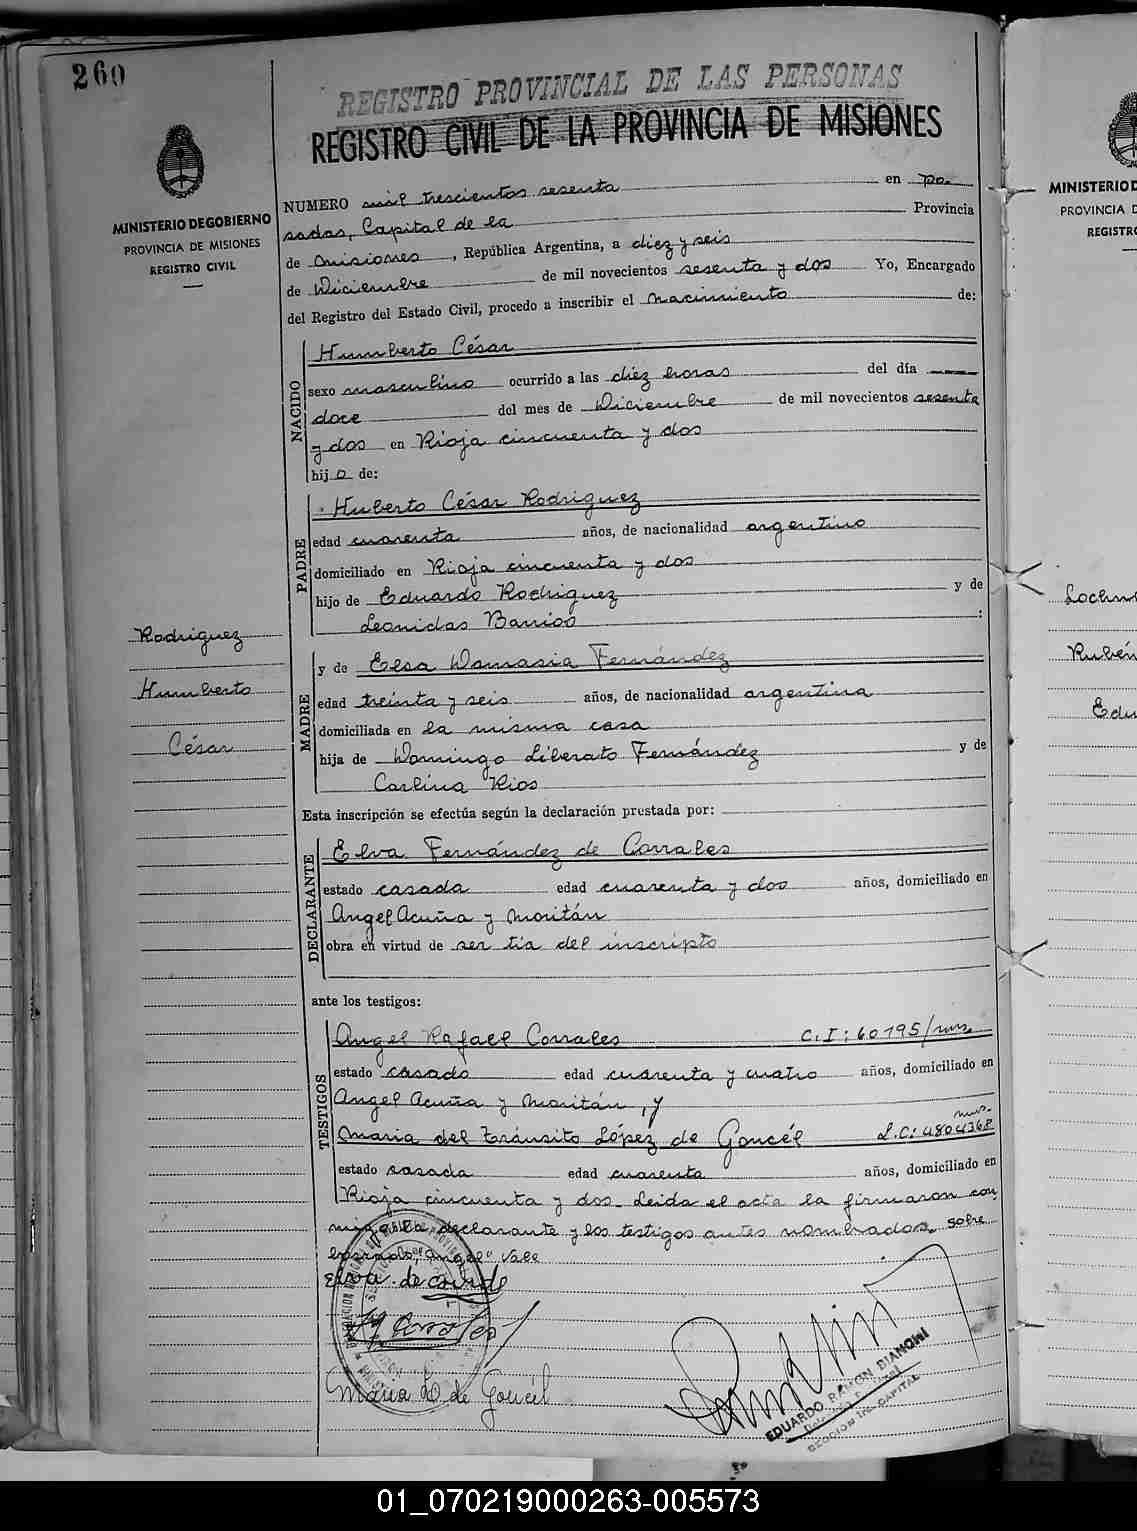 260
REGISTRO PROVINCIAL DE LAS PERSONAS
REGISTRO CIVIL DE LA PROVINCIA DE MISIONES
MINISTERIO DE GOBIERNO
PROVINCIA DE MISIONES
REGISTRO CIVIL
NUMERO mil trescientos sesenta en Po-
sadas, Capital de la Provincia
de Misiones, República Argentina, a diez y seis
de Diciembre de mil novecientos sesenta y dos Yo, Encargado
del Registro del Estado Civil, procedo a inscribir el nacimiento de:
NACIDO
Humberto César
sexo masculino ocurrido a las diez horas del día
doce del mes de Diciembre de mil novecientos sesenta
y dos en Rioja cincuenta y dos
hijo de:
PADRE
Huberto César Rodriguez
edad cuarenta años, de nacionalidad argentino
domiciliado en Rioja cincuenta y dos
hijo de Eduardo Rodriguez y de
Leonidas Barrios :
Rodriguez
Humberto
César
MADRE
y de Elsa Damasia Fernández
edad treinta y seis años, de nacionalidad argentina
domiciliada en la misma casa
hija de Domingo Liberato Fernández y de
Carlina Rios
Esta inscripción se efectúa según la declaración prestada por:
DECLARANTE
Elva Fernández de Corrales
estado casada edad cuarenta y dos años, domiciliado en
Angel Acuña y Moritán
obra en virtud de ser tía del inscripto
ante los testigos:
TESTIGOS
Angel Rafael Corrales C.I: 60195/mns.
estado casado edad cuarenta y cuatro años, domiciliado en
Angel Acuña y Moritán, y
Maria del Tránsito López de Goncél L.C: 4804368 mns.
estado casada edad cuarenta años, domiciliado en
Rioja cincuenta y dos. Leida el acta la firmaron con
migo la declarante y los testigos antes nombrados. Sobre
borrado: "Angel" Vale
Elva de
Maria L de Goncél
EDUARDO RAMON BIANCHI
SECCION 1ra. CAPITAL
MINISTERIO D
PROVINCIA D
REGISTR
Rubén
Edu
01_070219000263-005573